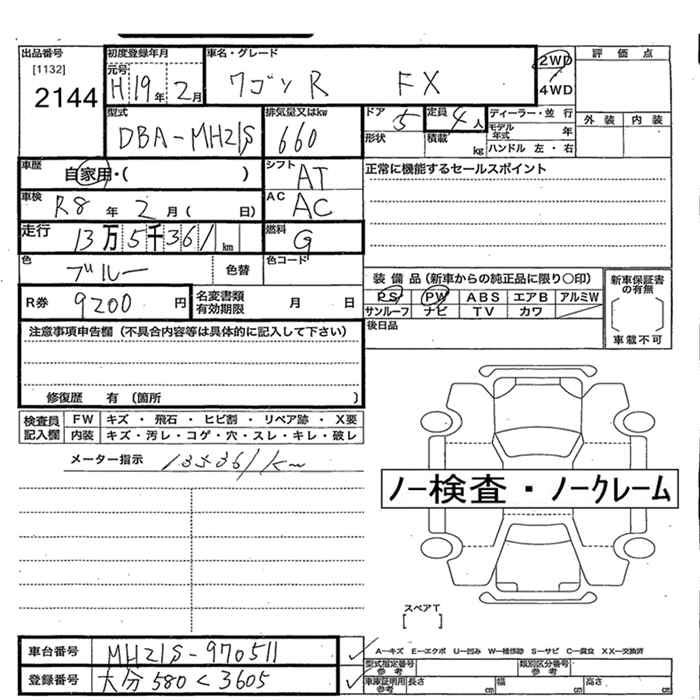 出品番号 初度登録年月 車名・グレード 評価点
[1132] 元号 2WD
2144 H19年 2月 ワゴンR FX 4WD
型式 排気量又はkw ドア 定員 ディーラー・並行 外装 内装
DBA-MH21S 660 5 4人 モデル年式 年
形状 積載 kg ハンドル 左・右
車歴 自家用・( ) シフト AT 正常に機能するセールスポイント
車検 R8年 2月( 日) AC AC
走行 13万5千361km 燃料 G
色 ブルー 色替 色コード
装備品(新車からの純正品に限り〇印) 新車保証書の有無
R券 9200円 名変書類有効期限 月 日 PS PW ABS エアB アルミW
サンルーフ ナビ TV カワ
注意事項申告欄(不具合内容等は具体的に記入して下さい) 後日品 車載不可
修復歴 有 (箇所 )
検査員 FW キズ・飛石・ヒビ割・リペア跡・X要
記入欄 内装 キズ・汚レ・コゲ・穴・スレ・キレ・破レ
メーター指示 135361km
ノー検査・ノークレーム
スペアT
車台番号 MH21S-970511 A-キズ E-エクボ U-凹み W-補修跡 S-サビ C-腐食 XX-交換済
型式指定番号 参考 類別区分番号 参考
登録番号 大分580く3605 車庫証明用 参考 長さ cm 幅 cm 高さ cm